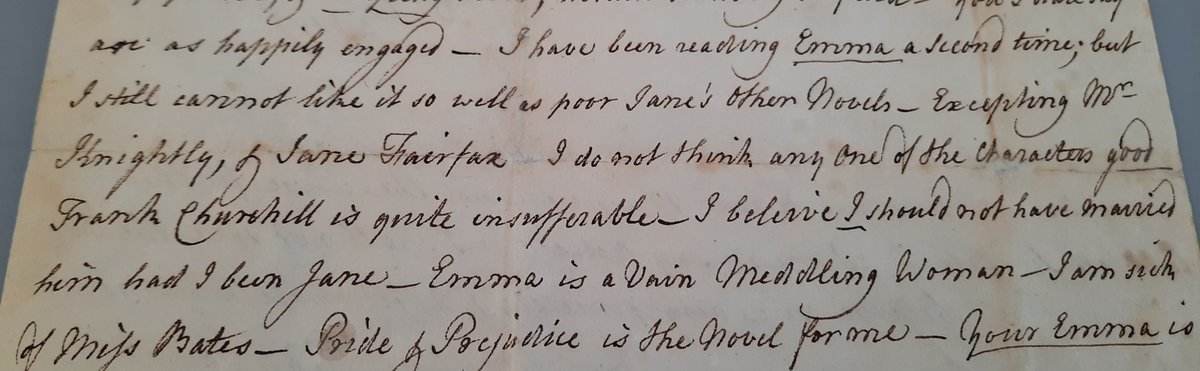 are as happily engaged — I have been reading Emma a second time; but
I still cannot like it so well as poor Jane's other Novels — Excepting Mr
Knightly, & Jane Fairfax I do not think any One of the Characters good
Frank Churchill is quite insufferable — I beleive I should not have married
him had I been Jane — Emma is a Vain Meddling Woman — I am sick
of Miss Bates — Pride & Prejudice is the Novel for me — Your Emma is